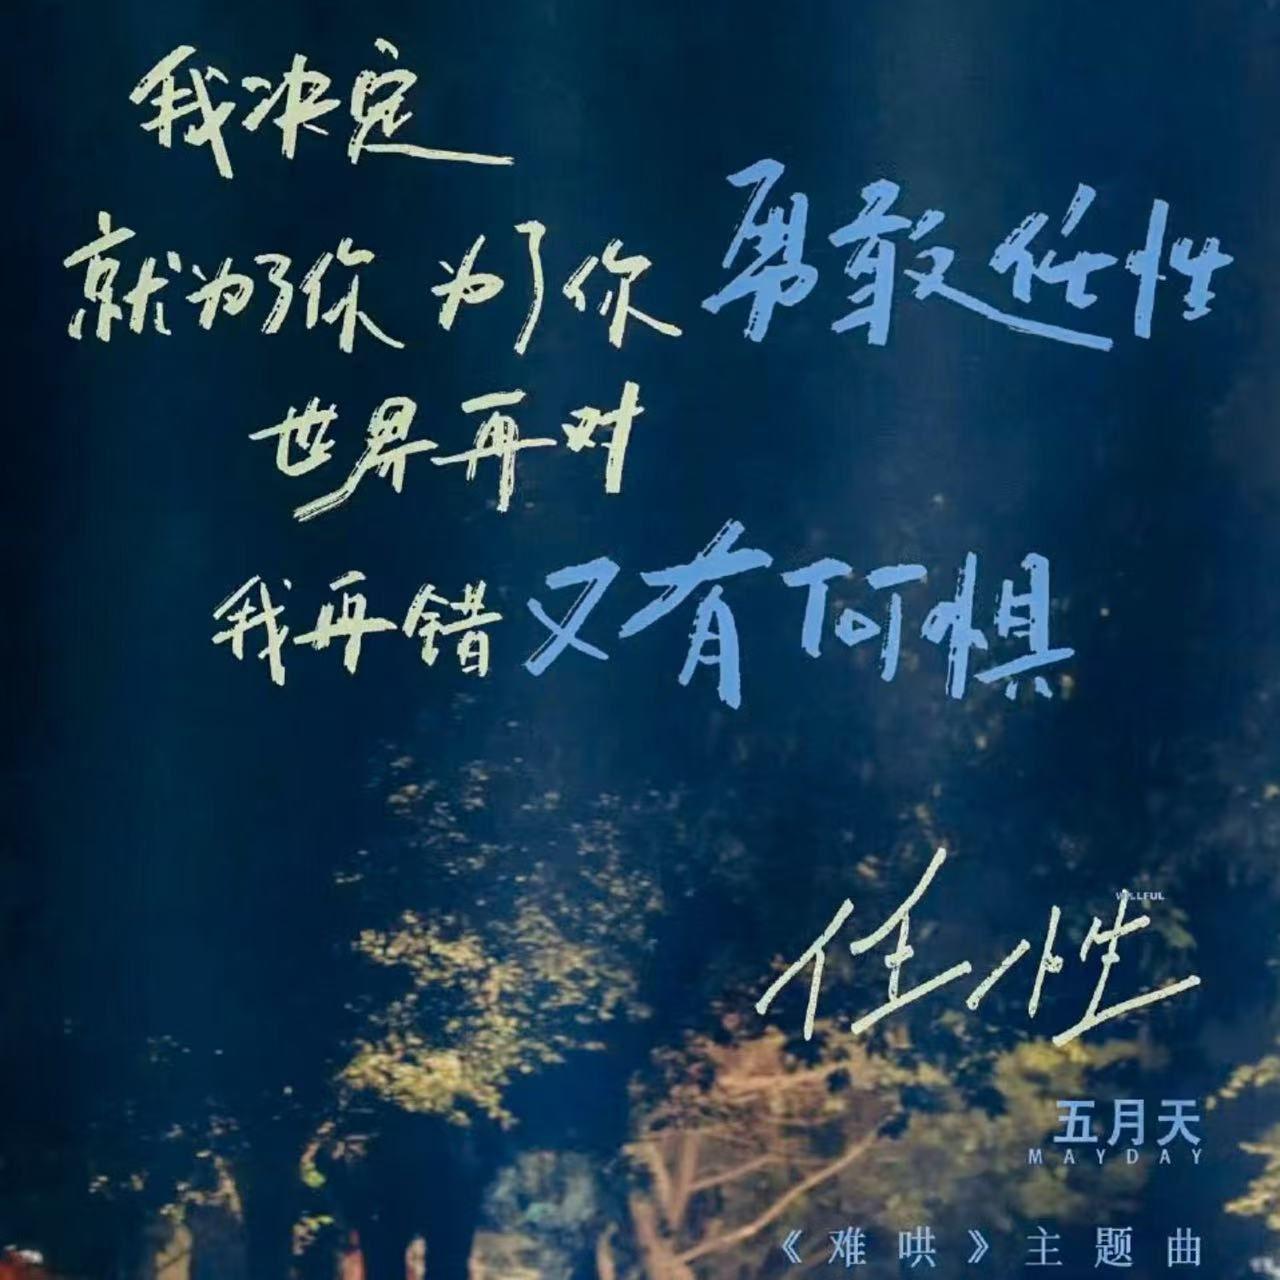 我决定
就为了你 为了你 勇敢任性
世界再对
我再错 又有何惧
WILLFUL
任性
五月天
MAYDAY
《难哄》主题曲